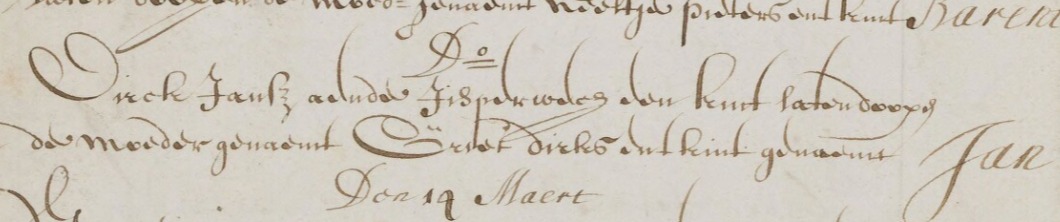 laten doopen de moeder genaemt Neeltje pieters ent kint Barent
Do
Dirck Jansz aende Jisperwech een kint laten doopen
de moeder genaemt Griet dirks ent kint genaemt Jan
Den 14 Maert